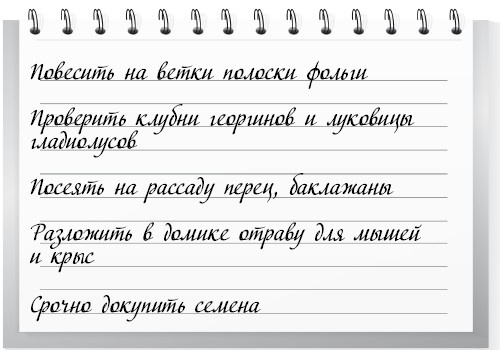 Повесить на ветки полоски фольги
Проверить клубни георгинов и луковицы
гладиолусов
Посеять на рассаду перец, баклажаны
Разложить в домике отраву для мышей
и крыс
Срочно докупить семена